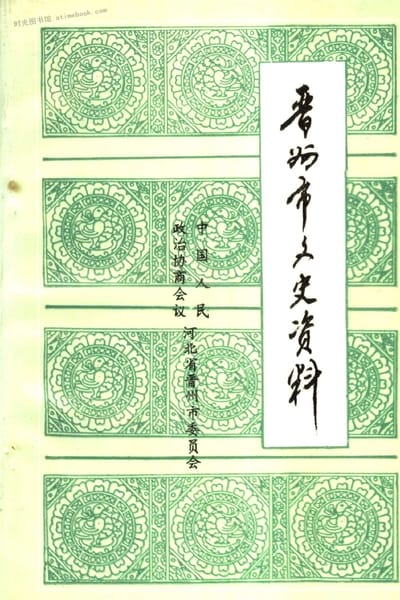 时光图书馆 atimebook.com
晋州市文史资料
中国人民
政治协商会议
河北省晋州市委员会